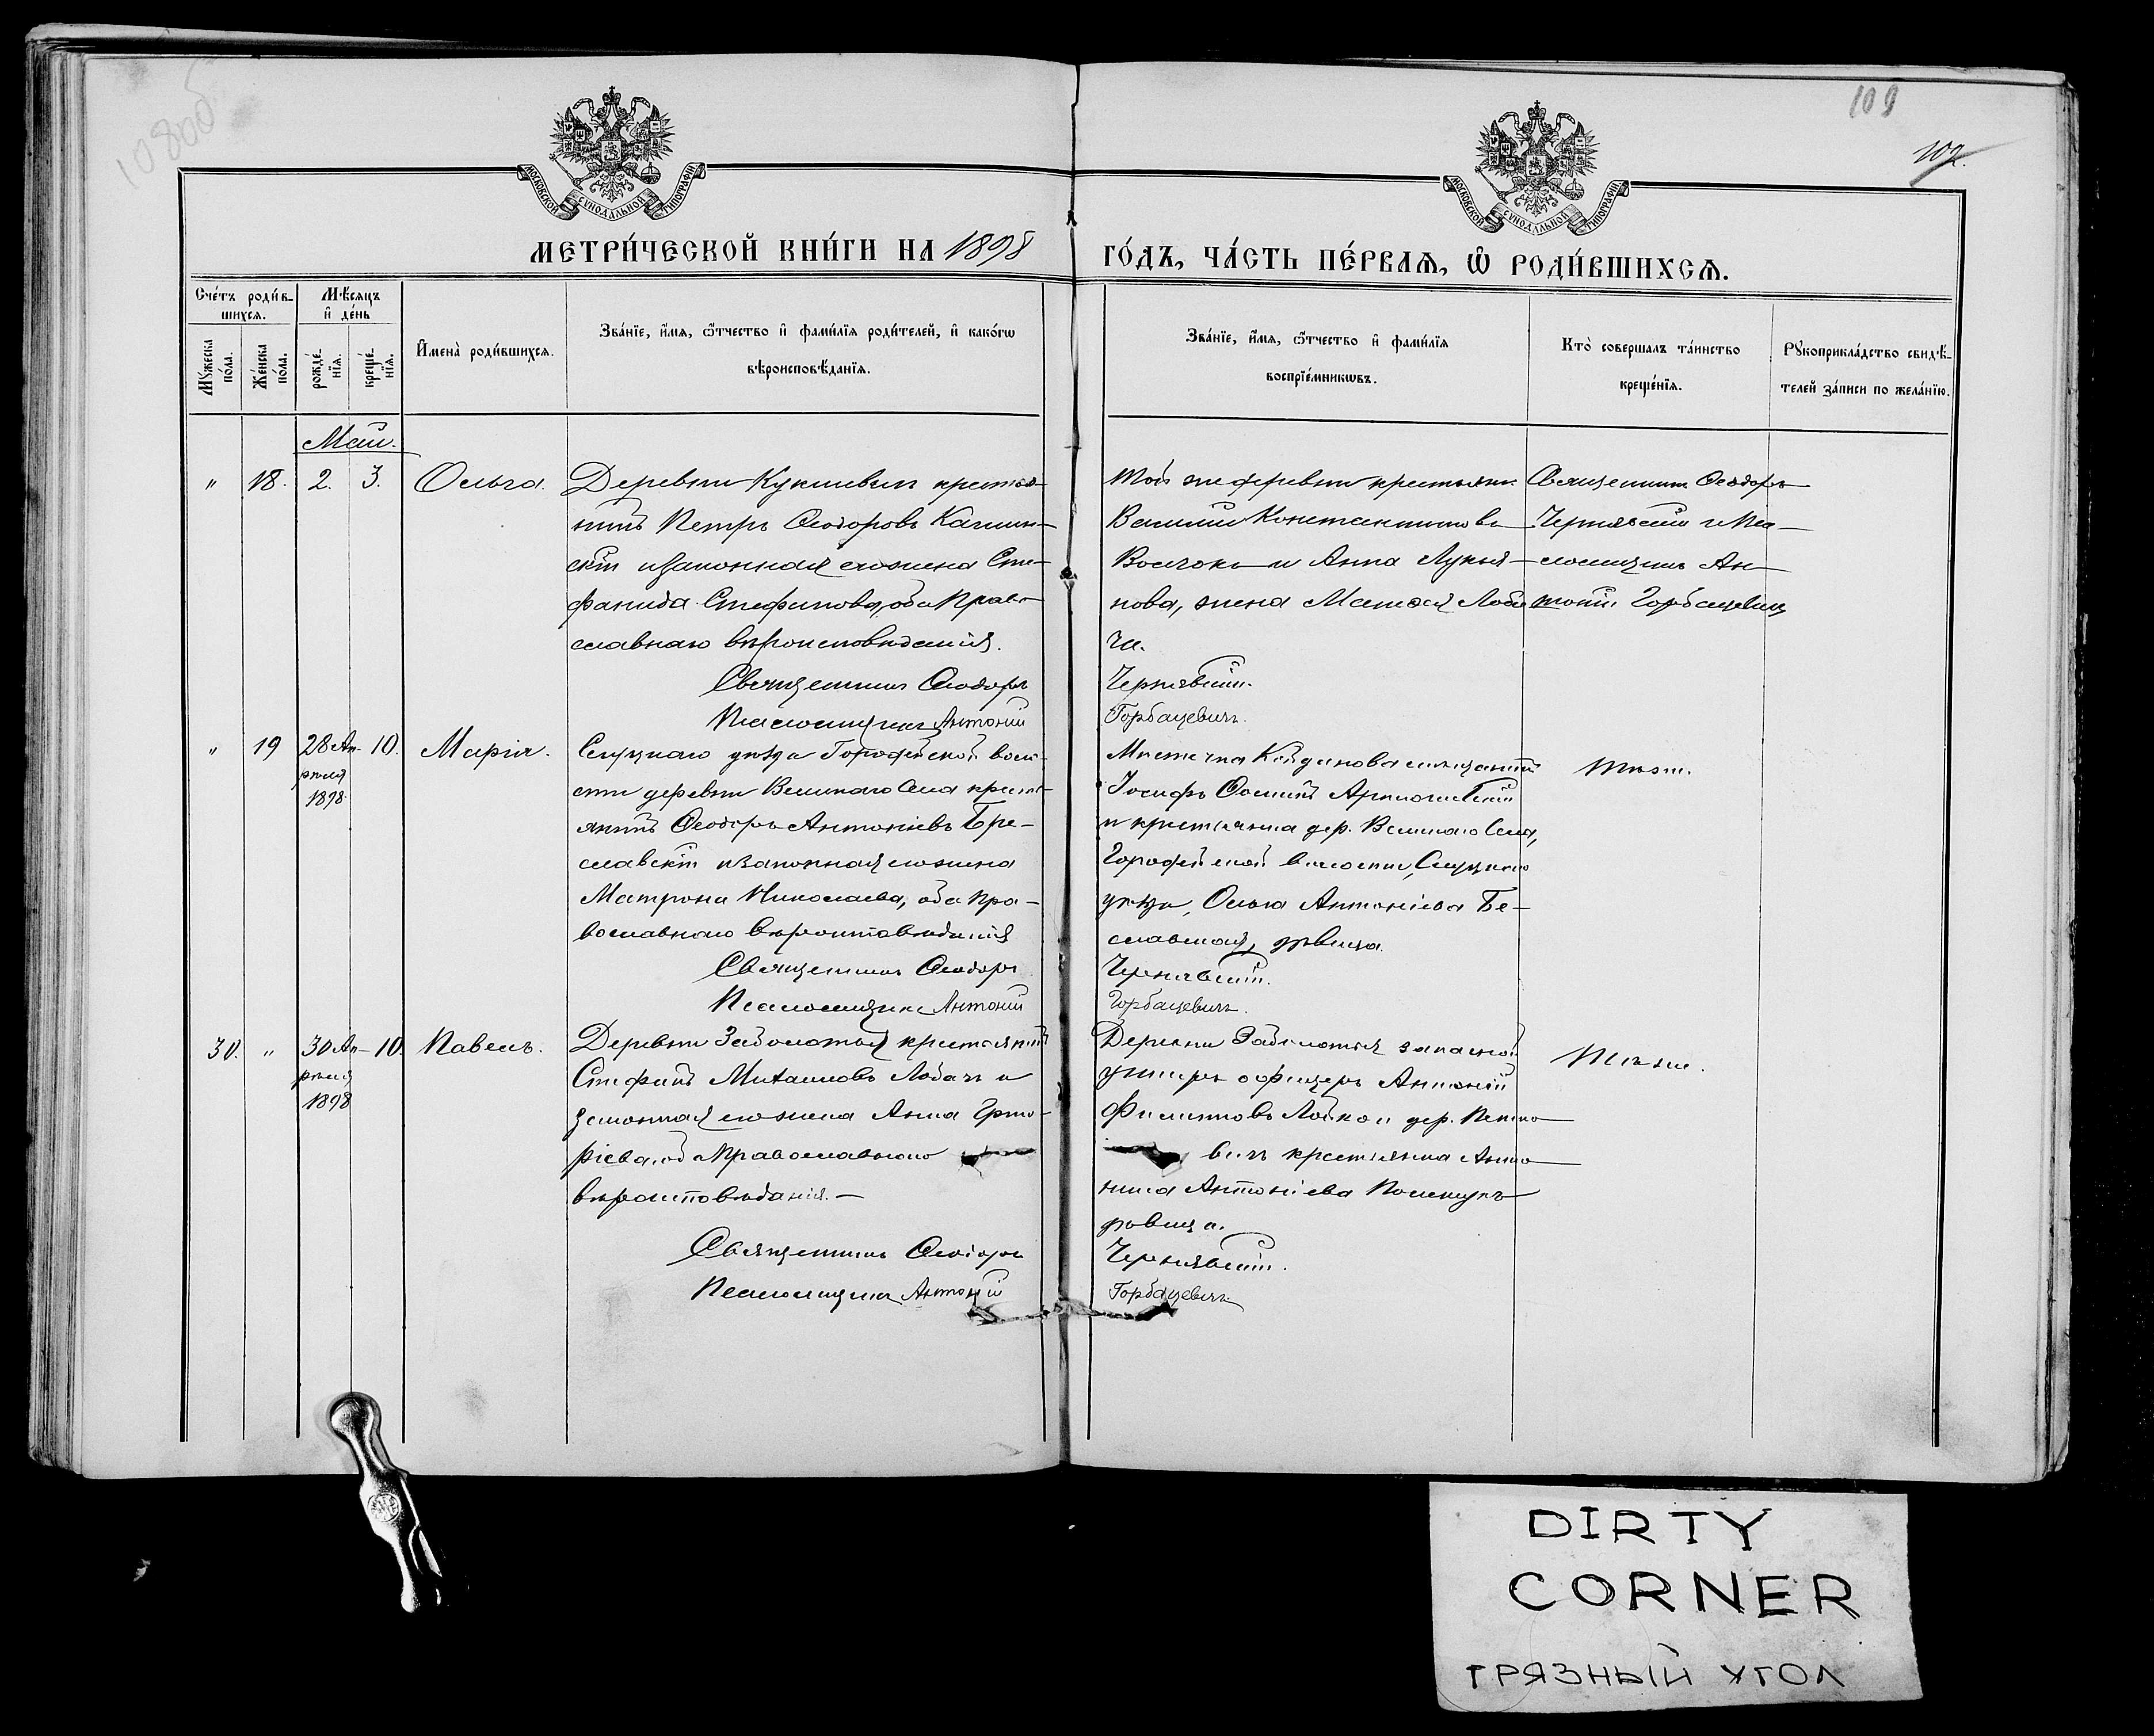 108об
109
109.
МОСКОВСКОЙ СѴНОДАЛЬНОЙ ТИПОГРАФІИ
МОСКОВСКОЙ СѴНОДАЛЬНОЙ ТИПОГРАФІИ
МЕТРИ́ЧЕСКОЙ КНИ́ГИ НА 1898
ГО́ДЪ, ЧА́СТЬ ПЕ́РВАЯ, Ѡ҆ РОДИ́ВШИХСЯ.
Сче́тъ роди́в-
шихся.
Мꙋ́жеска
по́ла.
Же́нска
по́ла.
Мѣ́сяцъ
и҆ де́нь
рожде́-
нїя.
креще́-
нїя.
И҆мена̀ роди́вшихся.
Зва́нїе, и҆́мя, ѻ҆́тчество и҆ фами́лїя роди́телей, и҆ како́гѡ
вѣроисповѣ́данїя.
Зва́нїе, и҆́мя, ѻ҆́тчество и҆ фами́лїя
воспрїе́мникѡвъ.
Кто̀ совершалъ та́инство
креще́нїя.
Рꙋкоприкла́дство свидѣ́-
телей за́писи по жела́нїю.
Май.
" 18. 2. 3. Ольга.
Деревни Кукшевичъ крестья-
нинъ Петръ Ѳеодоровъ
и законная его жена Сте-
фанида Стефанова, оба Право-
славнаго вѣроисповѣданія.
Священникъ Ѳеодоръ
Псаломщикъ Антоній
Той же деревни крестьянинъ
Василій Константиновъ
и Анна Лукья-
нова, жена Матѳея Лоба
ча.
Чернявскій.
Горбацевичъ.
Священникъ Ѳеодоръ
Чернявскій и Пса-
ломщикъ Ан-
тоній Горбацевичъ
" 19 28 Ап- 10. Марія.
рѣля
1898
Слуцкаго уѣзда Городейской воло-
сти деревни Великаго Села кресть-
янинъ Ѳеодоръ Антоніевъ Бре-
славскій и законная его жена
Матрона Николаева, оба Пра-
вославнаго вѣроисповѣданія
Священникъ Ѳеодоръ
Псаломщикъ Антоній
Мѣстечка Койданова мѣщанинъ
Іосифъ Ѳоминъ
и крестьянка дер. Великаго Села,
Городейской волости, Слуцкаго
уѣзда, Ольга Антоніева Бе-
славская, дѣвица.
Чернявскій.
Горбацевичъ.
Тѣже.
30. " 30 Ап- 10. Павелъ.
рѣля
1898
Деревни Заболотья крестьянинъ
Стефанъ Михаиловъ Лобачъ и
законная его жена Анна Григо-
ріева, оба Православнаго
вѣроисповѣданія.—
Священникъ Ѳеодоръ
Псаломщикъ Антоній
Деревни Заболотья запасной
унтеръ офицеръ Антоній
Филипповъ Лойко и дер.
вичъ крестьянка Анто-
нина Антоніева
дѣвица.
Чернявскій.
Горбацевичъ
Тѣже.
DIRTY
CORNER
ГРЯЗНЫЙ УГОЛ